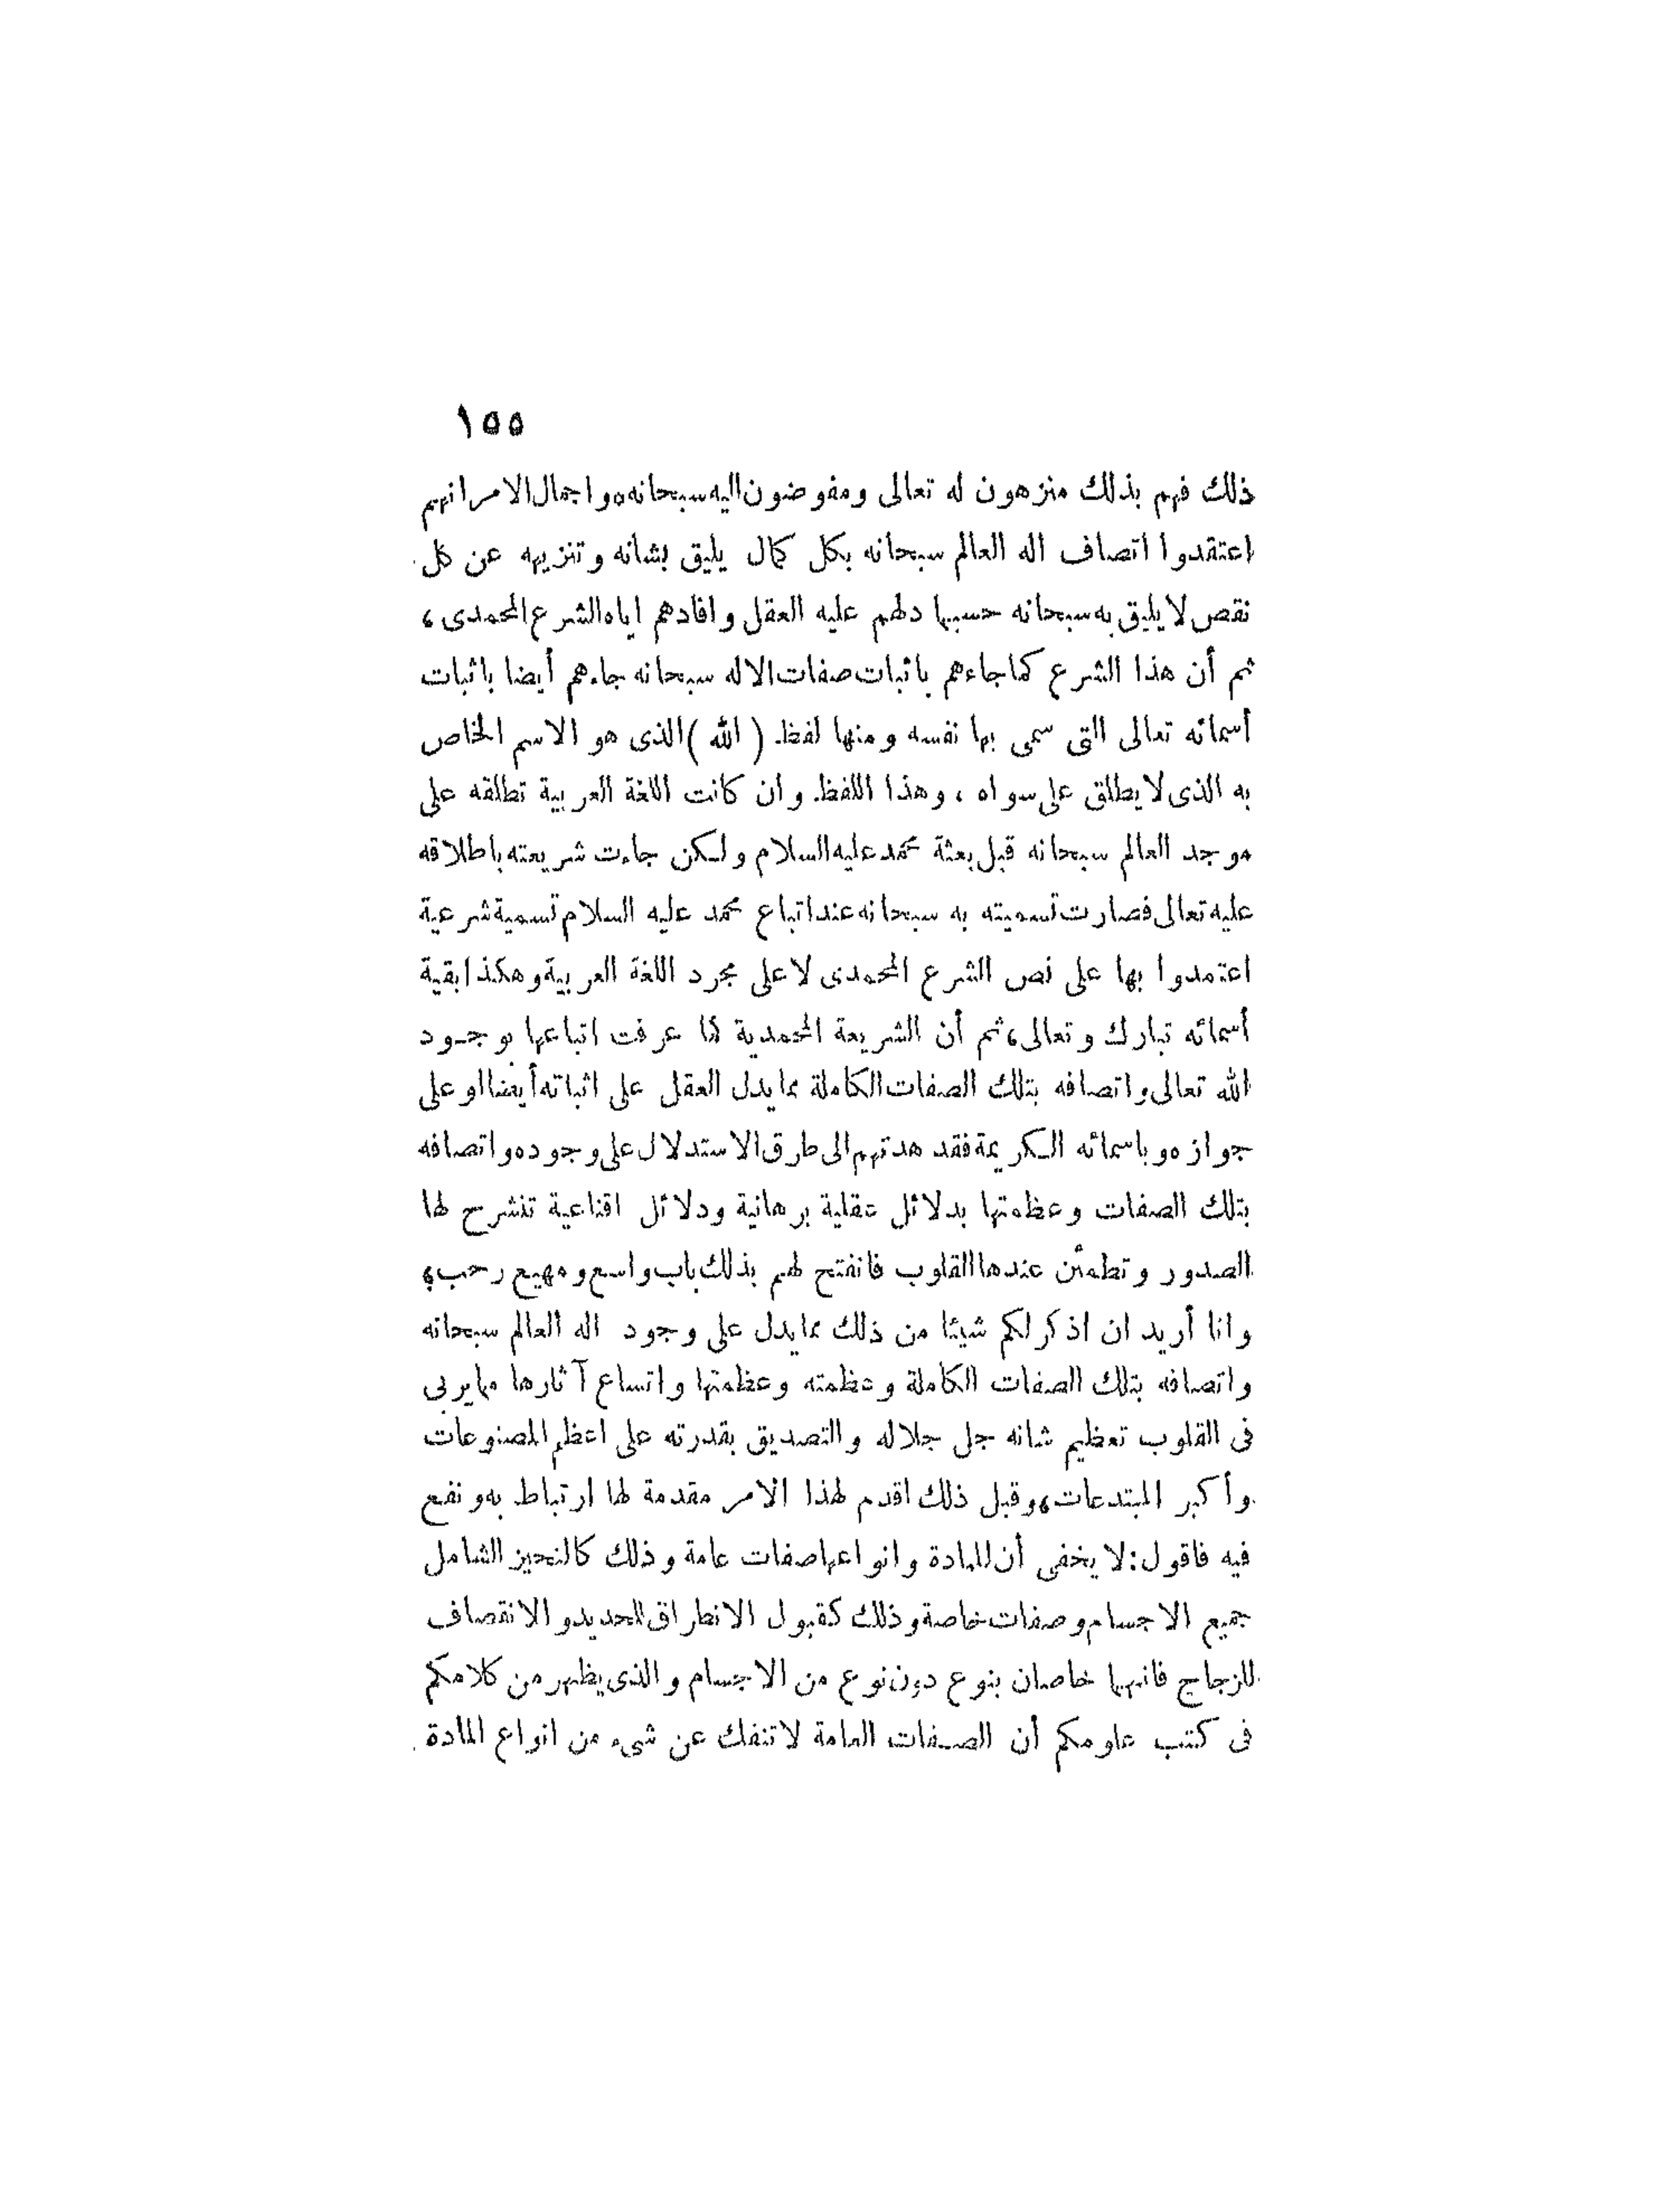 ١٥٥
ذلك فهم بذلك منزهون له تعالى ومفوضون اليه سبحانه، واجمال الامر انهم
اعتقدوا اتصاف اله العالم سبحانه بكل كمال يليق بشانه وتنزيهه عن كل
نقص لا يليق به سبحانه حسبما دلهم عليه العقل وافادهم اياه الشرع المحمدى ،
ثم أن هذا الشرع كما جاءهم باثبات صفات الاله سبحانه جاءهم أيضا باثبات
أسمائه تعالى التى سمى بها نفسه ومنها لفظ ( الله ) الذى هو الاسم الخاص
به الذى لا يطلق على سواه ، وهذا اللفظ وان كانت اللغة العربية تطلقه على
موجد العالم سبحانه قبل بعثة محمد عليه السلام ولكن جاءت شريعته باطلاقه
عليه تعالى فصارت تسميته به سبحانه عند اتباع محمد عليه السلام تسمية شرعية
اعتمدوا بها على نص الشرع المحمدى لا على مجرد اللغة العربية وهكذا بقية
أسمائه تبارك وتعالى، ثم أن الشريعة المحمدية كما عرفت اتباعها بوجود
الله تعالى واتصافه بتلك الصفات الكاملة مما يدل العقل على اثباته أيضا او على
جوازه وباسمائه الكريمة فقد هدتهم الى طرق الاستدلال على وجوده واتصافه
بتلك الصفات وعظمتها بدلائل عقلية برهانية ودلائل اقناعية تنشرح لها
الصدور وتطمئن عندها القلوب فانفتح لهم بذلك باب واسع ومهيع رحب،
وانا أريد ان اذكر لكم شيئا من ذلك مما يدل على وجود اله العالم سبحانه
واتصافه بتلك الصفات الكاملة وعظمته وعظمتها واتساع آثارها مما يربى
فى القلوب تعظيم شانه جل جلاله والتصديق بقدرته على اعظم المصنوعات
وأكبر المبتدعات، وقبل ذلك اقدم لهذا الامر مقدمة لها ارتباط به ونفع
فيه فاقول: لا يخفى أن للمادة وانواعها صفات عامة وذلك كالتحيز الشامل
جميع الاجسام وصفات خاصة وذلك كقبول الانطراق للحديد والانقصاف
للزجاج فانهما خاصان بنوع دون نوع من الاجسام والذى يظهر من كلامكم
فى كتب علومكم أن الصفات العامة لا تنفك عن شىء من انواع المادة